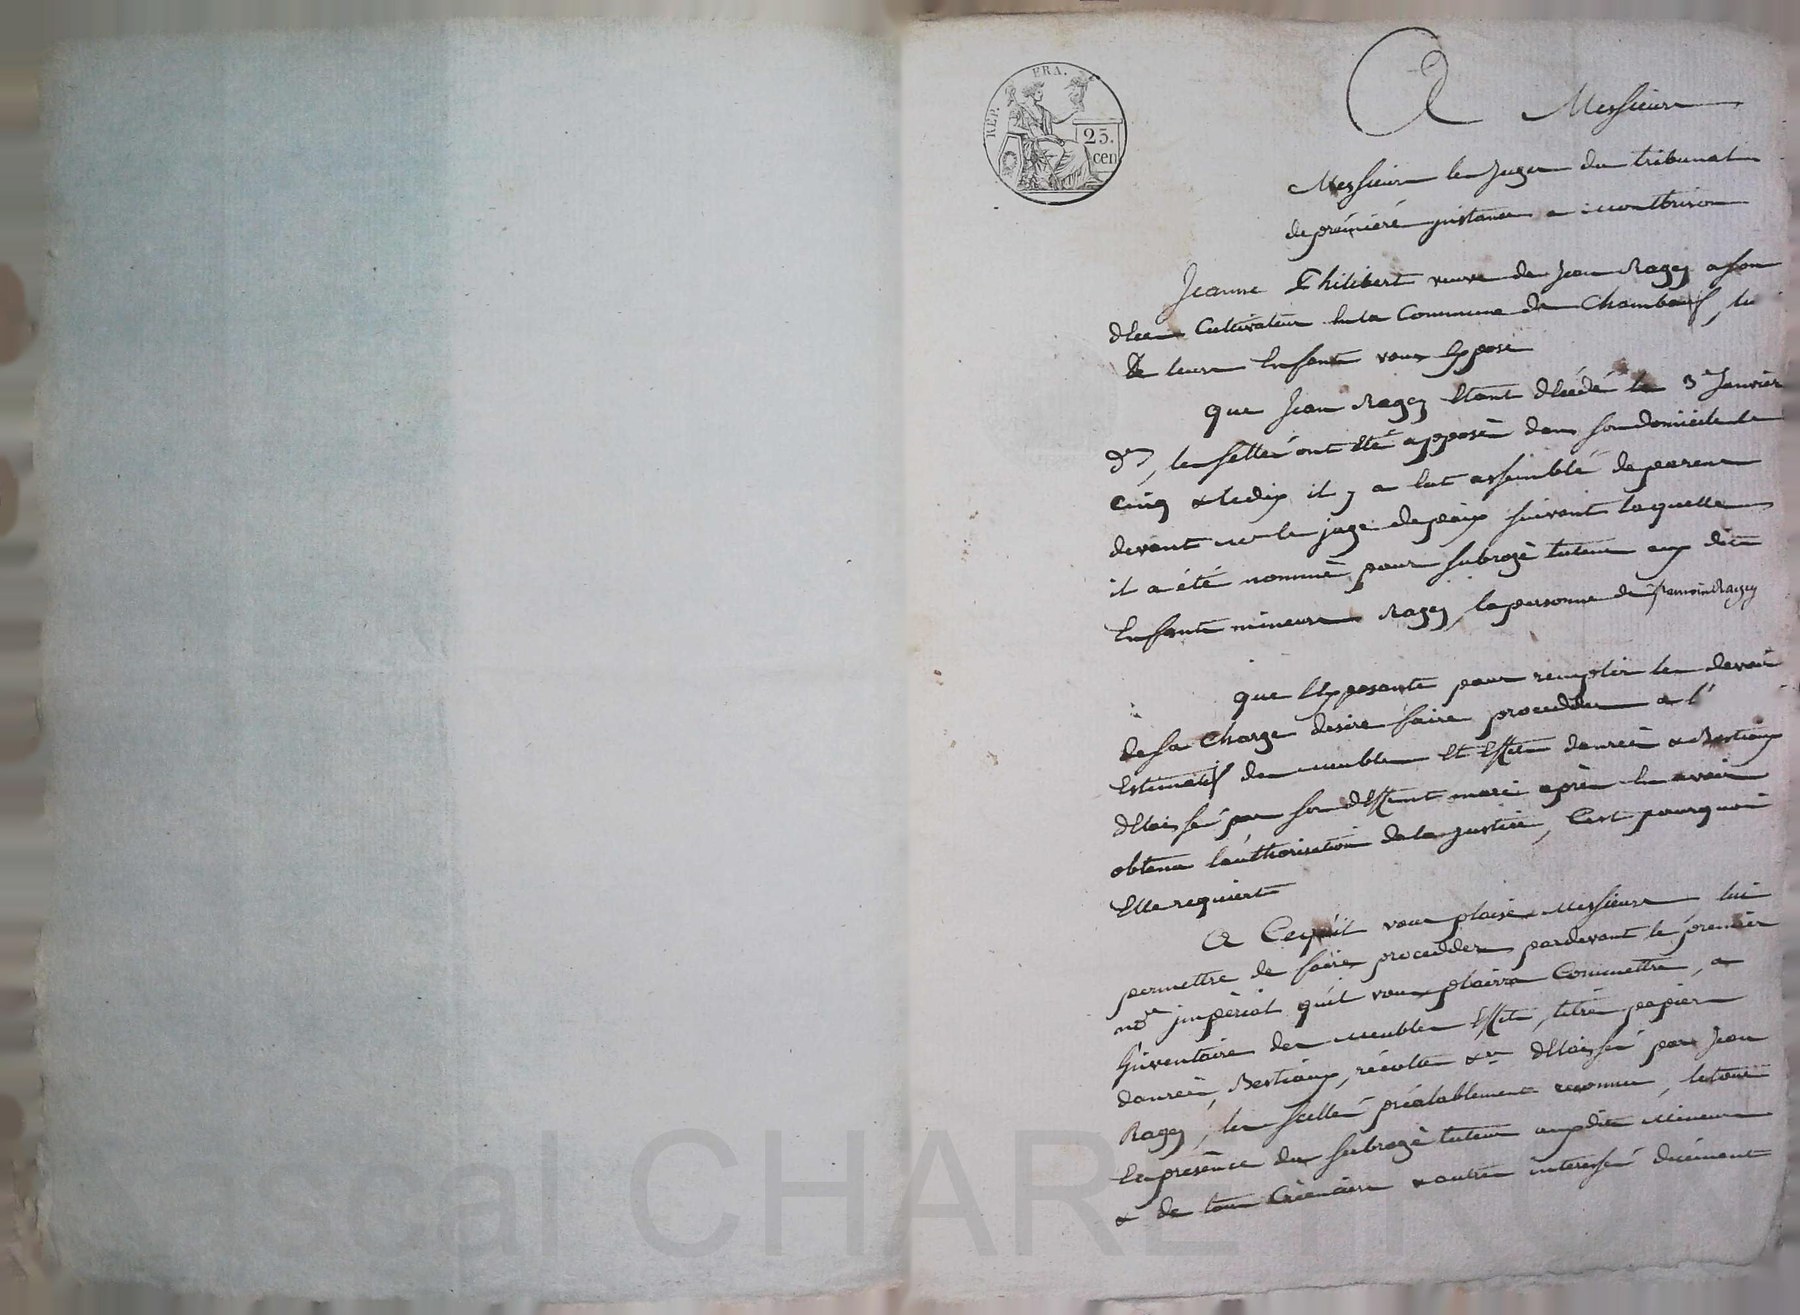 REP. FRA.
25.
cen
A Messieurs
Messieurs les Juges du tribunal
de prémiére instance a montbrison
Jeanne Philibert veuve de Jean Ragey a son
décès Cultivateur en la Commune de Chambœuf, tu
de leurs Enfants vous Expose
que Jean Ragey Etant décédé le 3e Janvier
der, les scellés ont Eté apposés dans son domicile le
cinq & le dix il y a eut assemblée de parens
devant mr le juge de paix suivant laquelle
il a été nommé pour subrogé tuteur aux dits
Enfants mineurs Ragey, la personne de francois Ragey
que l'Exposante pour remplir le devoir
de sa charge desire faire proceder a l'
Estimatif des meubles Et Effets danrées & Bestiaux
délaissés par son deffunt mari après en avoir
obtenu l'authorisation de la justice, C'est pourquoi
Elle requiert
A Ce qu'il vous plaise Messieurs lui
permettre de faire proceder pardevant le premier
nore impérial qu'il vous plairra Commettre, a
l'inventaire des meubles Effets, titres papiers
danrées, Bestiaux, récoltes &a délaissés par Jean
Ragey, les scellés préalablement reconnus, le tout
En présence du subrogé tuteur auxdits Mineurs
& de tous Créanciers & autres interessés duement
scal CHARE